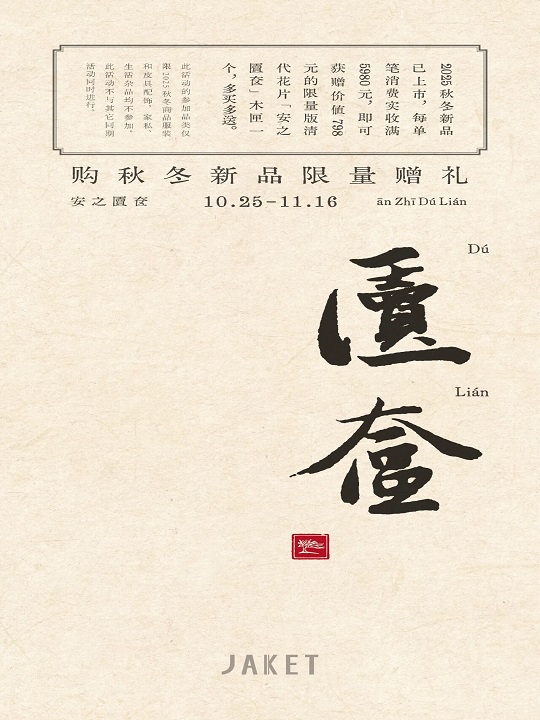 2025秋冬新品
已上市，每单
笔消费实收满
5980元，即可
获赠价值798
元的限量版清
代花片「安之
匵奁」木匣一
个，多买多送。
此活动的参加品类仅
限2025秋冬商品服装
和皮具配饰，家私、
生活杂品均不参加。
此活动不与其它同期
活动同时进行。
购秋冬新品限量赠礼
安之匵奁
10.25-11.16
ān Zhī Dú Lián
Dú
匵
Lián
奁
JAKET